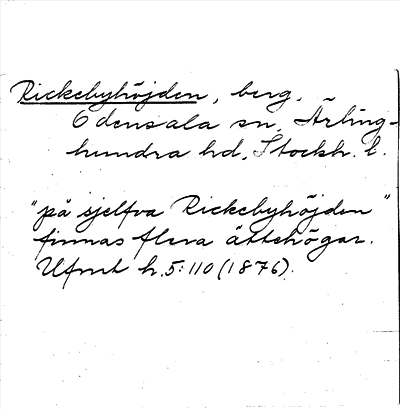 Rickebyhöjden, berg,
Odensala sn, Ärling-
hundra hd, Stockh. l.
"på sjelfva Rickebyhöjden"
finnas flera ättehögar.
Ufmt h. 5:110 (1876).